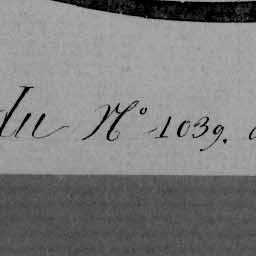 du Nº 1039.